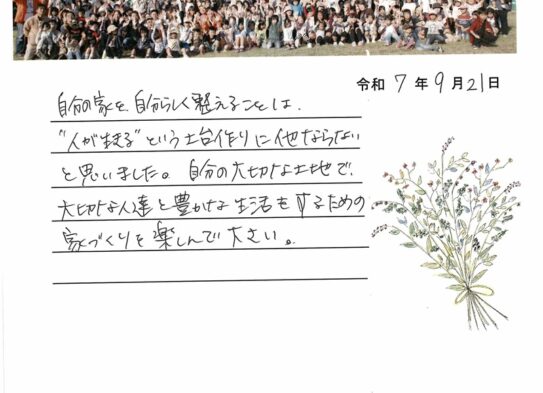 令和 7 年 9 月 21 日
自分の家を、自分らしく整えることは、
"人が生きる"という土台作りに他ならない
と思いました。自分の大切な土地で、
大切な人達と豊かな生活をするための
家づくりを楽しんで下さい。